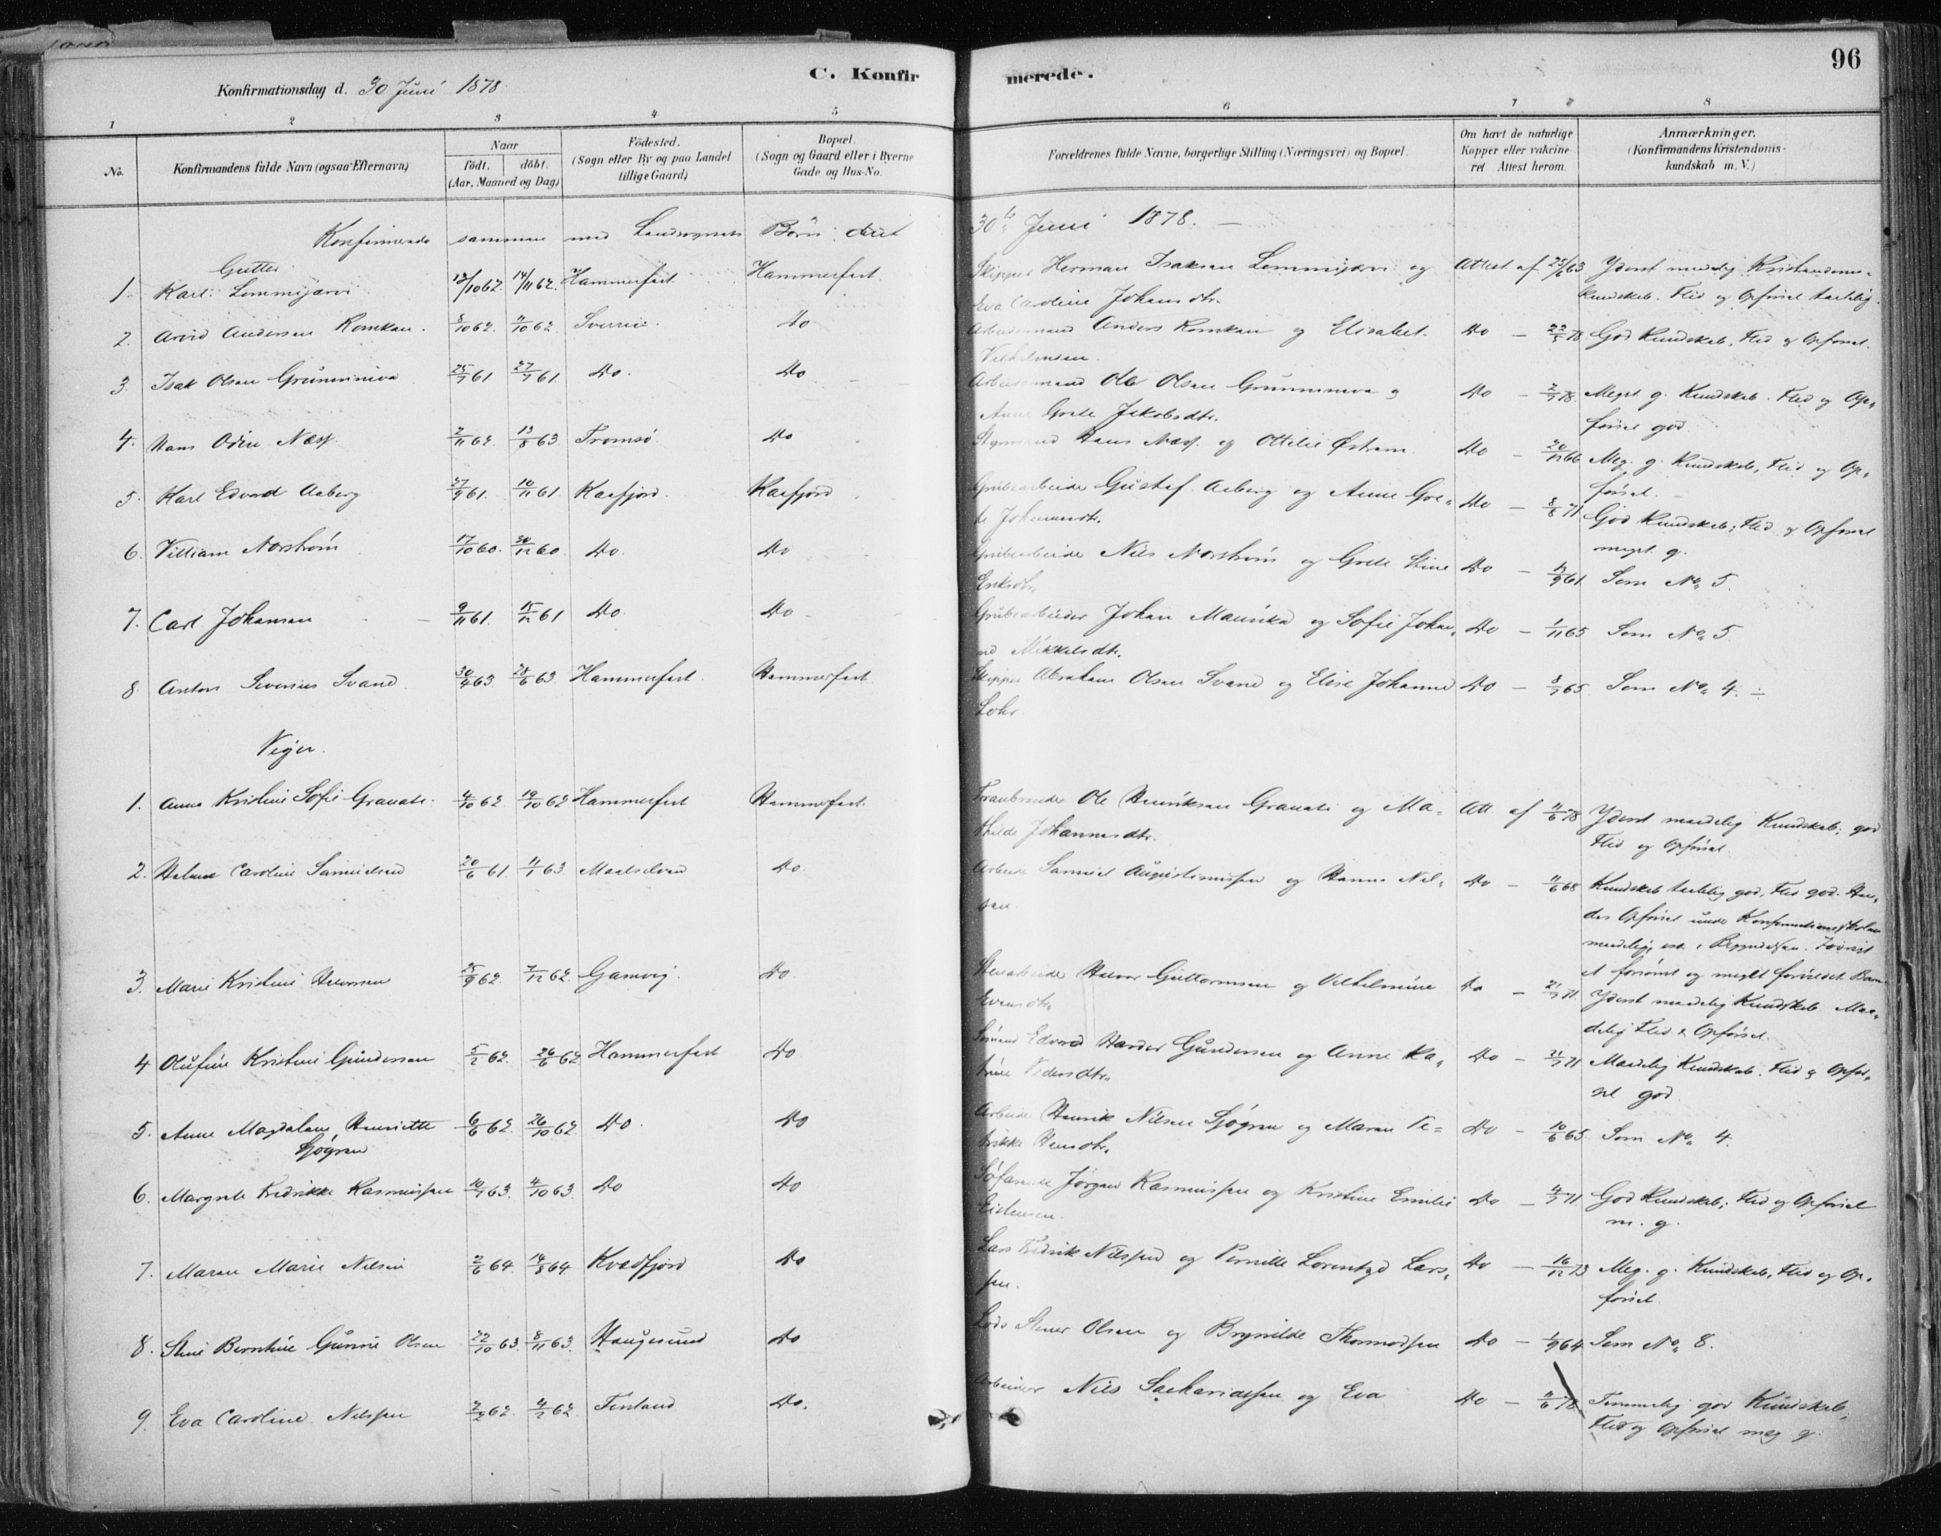 96
C. Konfirmerede.
Konfirmationsdag d. 30 Juni 1878.
1 2 3 4 5 6 7 8
No.
Konfirmandens fulde Navn (ogsaa Efternavn)
Naar
födt. döbt.
(Aar, Maaned og Dag)
Födested.
(Sogn eller By og paa Landet tillige Gaard)
Bopæl.
(Sogn og Gaard eller i Byerne Gade og Hus-No.
Forældrenes fulde Navne, borgerlige Stilling (Næringsvei) og Bopæl.
Om havt de naturlige Kopper eller vakcineret Attest herom.
Anmærkninger.
(Konfirmandens Kristendomskundskab m. V.)
Konfirmerede sammen med Landsognets Børn 30te Juni 1878. —
Gutter
1. Karl Lommijarvi 14/11 62 Hammerfest Hammerfest Skipper Herman Isaksen Lommijarvi og Attest af Yderst maadelig Kristendoms-
Eva Caroline Johansdtr. kundskab. Flid og Opførsel taalelig.
2. Arvid Andersen Romkan. 8/10 62 11/10 62 Sverrie. Do Arbeidsmand Anders Romkan og Elisabet Do — 22/5 78 God Kundskab, Flid og Opførsel.
3. Isak Olsen 25/7 61 27/7 61 Do. Do Arbeidsmand Ole Olsen og Do — Meget g. Kundskab. Flid og Op-
Anne Grete Jakobsdtr. førsel god
4. Hans Odin Næss 2/11 62 13/8 63 Tromsø Do Hans Næss. og Ottilie Østrem Do — Meg. g. Kundskab, Flid og Op-
førsel. —
5. Karl Edvard Aaberg 27/9 61. 10/11 61 Kaafjord. Kaafjord Grubearbeider Gustaf Aaberg og Anne Gre- Do — 8/8 71 God Kundskab; Flid og Opførsel
te Johannesdtr. meget g.
6. Villiam Norstrøm 17/10 60. 30/12 60. Do. Do Grubearbeider Nils Norstrøm og Grete Stine Do — Som No. 5.
Eriksdtr.
7. Carl Johansen 9/11 61. 15/12 61 Do Do Grubearbeider Johan Maunika og Sofie Johan- Do — 1/11 65 Som No. 5
ne Mikkelsdtr.
8. Anton Severius Svane 30/4 63. 28/6 63 Hammerfest. Hammerfest Skipper Abraham Olsen Svane og Elise Johanne Do — Som No. 4.
Lohr
Piger.
1. Anna Kristine Sofie Granate. 4/10 62 19/10 62 Hammerfest Hammerfest. Ole Henriksen Granate og Ma- Att. af 11/6 78 Yderst maadelig Kundskab; god
thilde Johannesdtr. Flid og Opførsel.
2. Caroline Samuelsen 20/6 61 11/1 63 Maalselven Do Arbeider Samuel Augustinussen og Hanna Nil- Do — 11/6 68 Kundskab taalelig god, Flid god. Hen-
sen des Opførsel under Konfirmationsskolen
maadelig, i Begyndelsen.
et forsømt og meget Barn
3. Marie Kristine Halvorsen 25/9 62 7/12 62 Gamvig. Do. Halvor Guttormsen og Vilhelmine Do — Yderst maadelig Kundskab. Maa-
Evensdtr. delig Flid & Opførsel.
4 Olufine Kristine Gundersen 5/2 62. 26/6 62 Hammerfest Do Edvard Harder Gundersen og Anne Ka- Do — Maadelig Kundskab. Flid & Opfør-
trine Pedersdtr. sel god
5. Anne Magdalene Henriette 6/6 62. 26/10 62. Do. Do Arbeider Henrik Nilsen Sjøgren og Maren Do — 10/6 65 Som No. 4.
Sjøgren
6. Margrete Fredrikke Rasmussen 4/10 63. Do Do Jørgen Rasmussen og Kristine Emilie Do — God Kundskab; Flid og Opførsel
m. g.
7. Maren Marie Nilsen 2/6 64. 14/8 64 Kvædfjord Do Lars Fredrik Nilssen og Pernille Lorentze Lars- Do — 16/12 73 Meg. g. Kundskab, Flid og Op-
sen. førsel.
8. Stine Bernhine Gurine Olsen 22/10 63. 8/11 63. Haugesund Do Lods Stener Olsen og Brynilde Thormodsen Do — Som No. 8.
9. Eva Caroline Nilssen 2/2 62. 4/2 62 Finland Do. Arbeider Nils Sachariassen og Eva Do — 11/6 78 Temmelig god Kundskab;
Flid og Opførsel meg g.